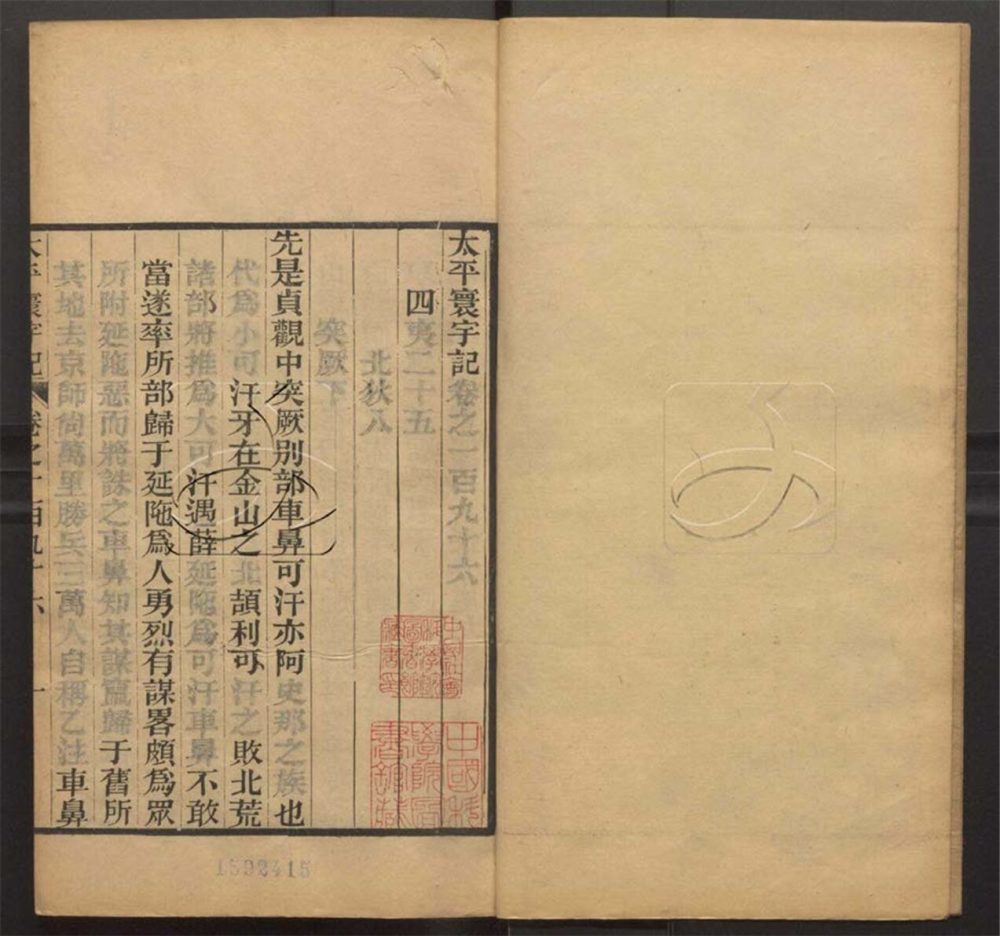 太平寰宇記卷之一百九十六
四夷二十五
北狄八
突厥下
先是貞觀中突厥別部車鼻可汗亦阿史那之族也
代爲小可汗牙在金山之北頡利可汗之敗北荒
諸部將推爲大可汗遇薛延陁爲可汗車鼻不敢
當遂率所部歸于延陁爲人勇烈有謀畧頗爲眾
所附延陁惡而將誅之車鼻知其謀竄歸于舊所
其地去京師尚萬里勝兵三萬人自稱乙注車鼻
太平寰宇記 卷之一百九十六 一
1592415